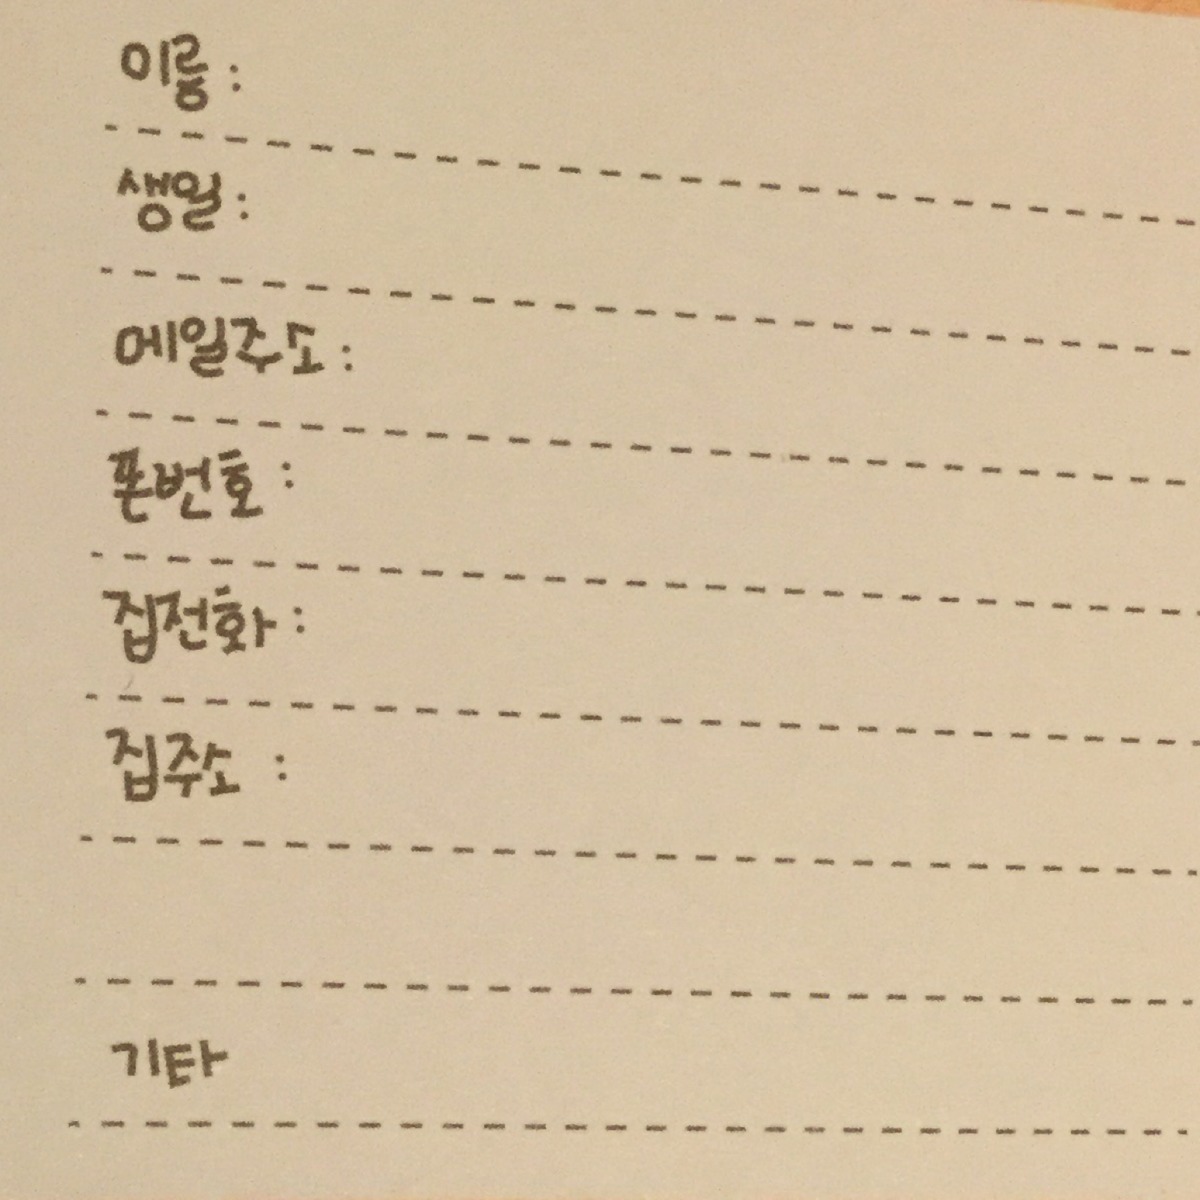 이름 :
생일 :
메일주소 :
폰번호 :
집전화 :
집주소 :
기타